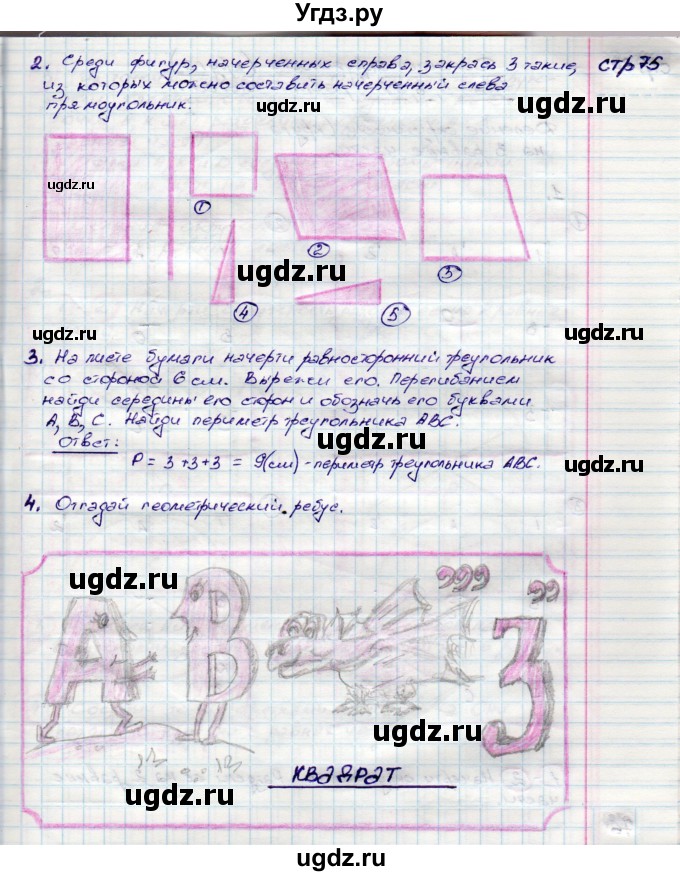 Угдз.ру
2. Среди фигур, начерченных справа, закрась 3 такие, стр 75
из которых можно составить начерченный слева
прямоугольник.
ugdz.ru
ugdz.ru
ugdz.ru
1
2
3
ugdz.ru
ugdz.ru
4
5
ugdz.ru
ugdz.ru
3. На листе бумаги начерти равносторонний треугольник
со стороной 6 см. Вырежи его. Перегибанием
найди середины его сторон и обозначь его буквами
А, Б, С. Найди периметр треугольника АВС.
ugdz.ru
Ответ:
Р = 3 + 3 + 3 = 9(см) - периметр треугольника АВС.
4. Отгадай геометрический ребус.
ugdz.ru
ugdz.ru
,,, ,,
А В 3
ugdz.ru
КВАДРАТ
ugdz.ru
ugdz.ru
ugdz.ru